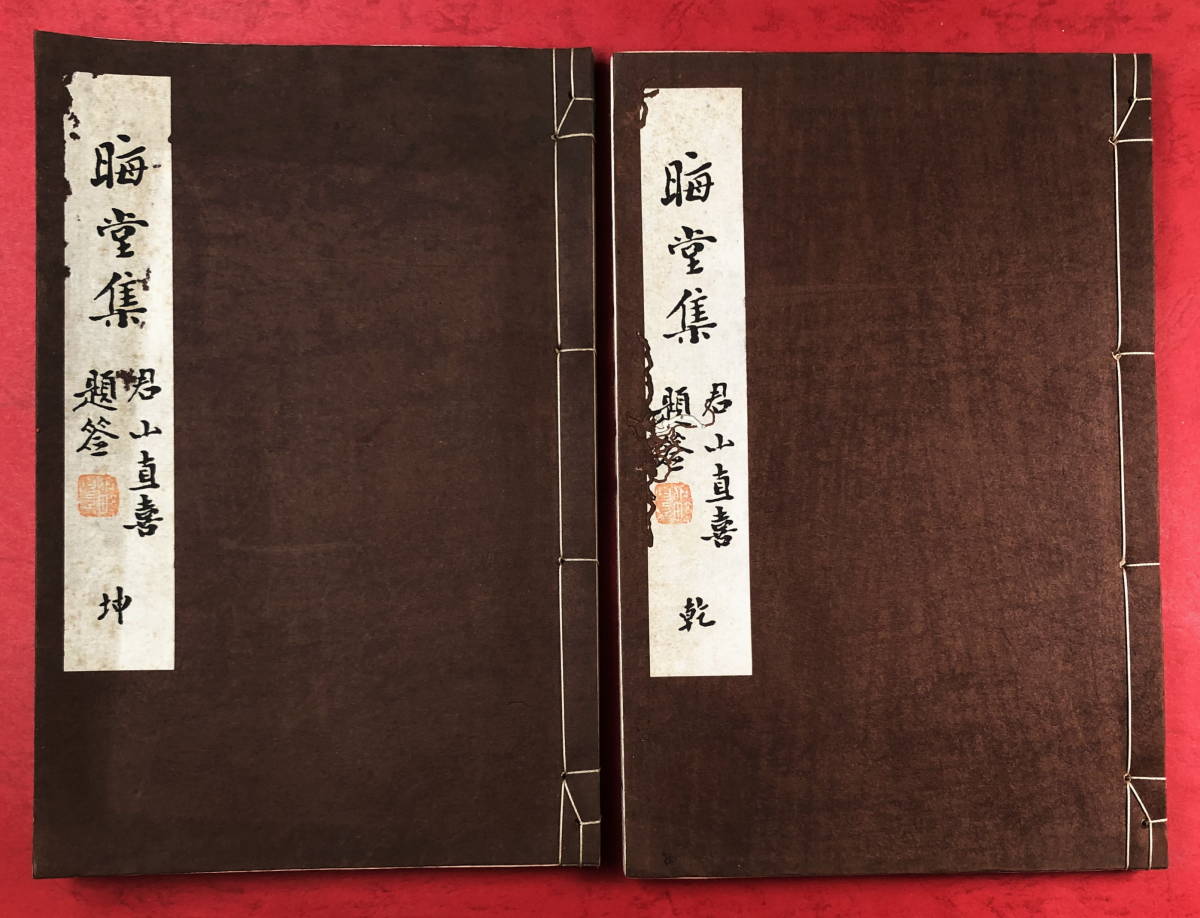 晦堂集
君山直喜
題簽
乾
晦堂集
君山直喜
題簽
坤